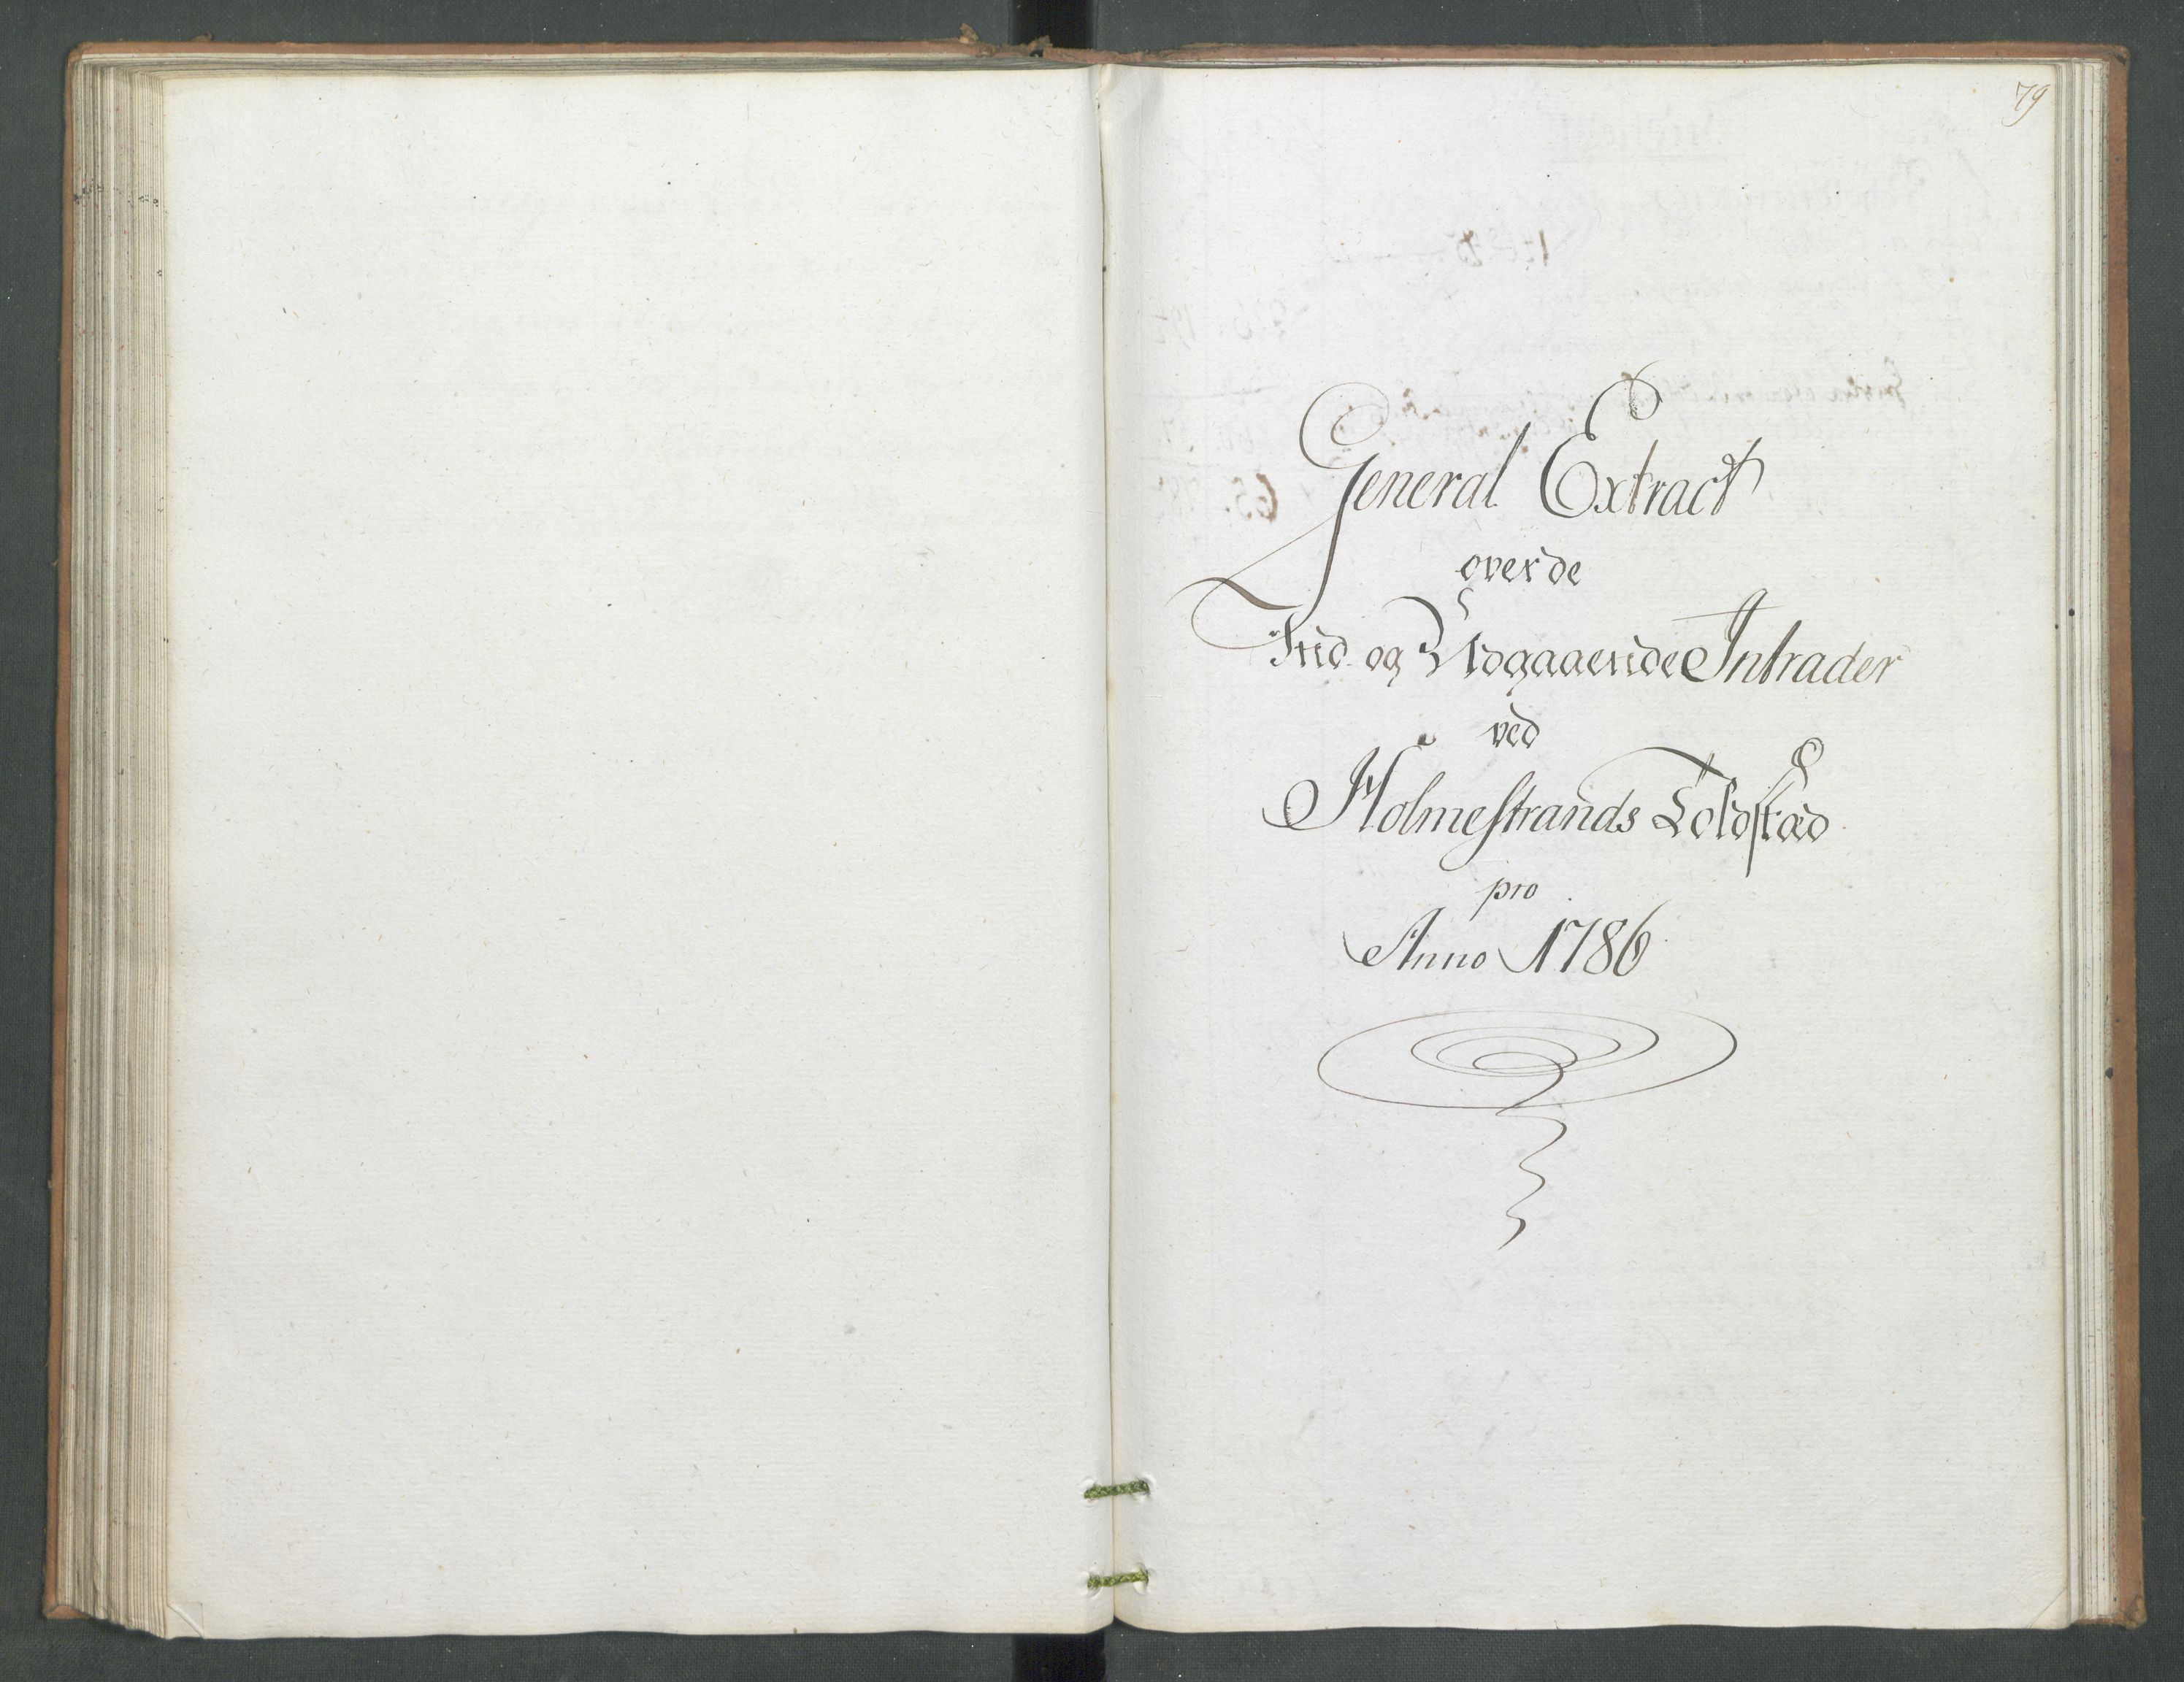 79
General Extract
over de
Ind og Udgaaende Intrader
ved
Holmestrands Toldstæd
pro
Anno 1786